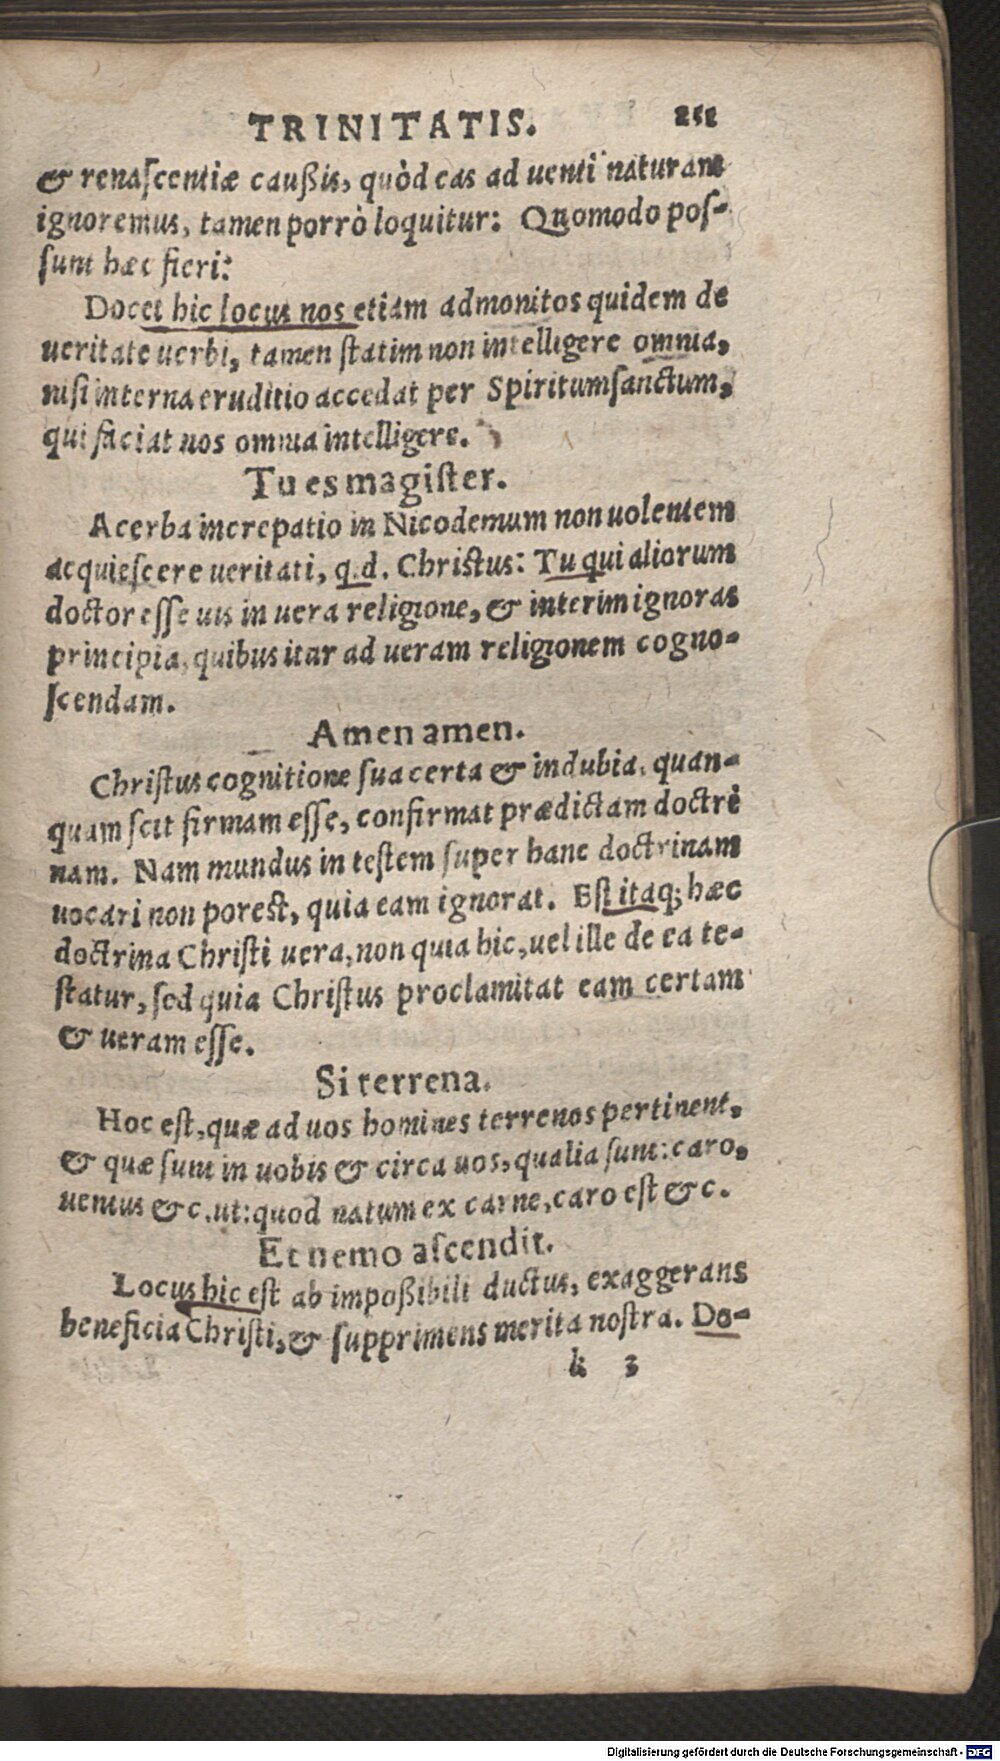 TRINITATIS. 251
& renascentiæ caußis, quòd eas ad uenti naturam
ignoremus, tamen porrò loquitur: Quomodo pos-
sunt hæc fieri?
Docet hic locus nos etiam admonitos quidem de
ueritate uerbi, tamen statim non intelligere omnia,
nisi interna eruditio accedat per Spiritumsanctum,
qui faciat nos omnia intelligere.
Tu es magister.
Acerba increpatio in Nicodemum non uolentem
acquiescere ueritati, q.d. Christus: Tu qui aliorum
doctor esse uis in uera religione, & interim ignoras
principia, quibus itur ad ueram religionem cogno-
scendam.
Amen amen.
Christus cognitione sua certa & indubia, quan-
quam scit firmam esse, confirmat prædictam doctri
nam. Nam mundus in testem super hanc doctrinam
uocari non potest, quia eam ignorat. Est itaq; hæc
doctrina Christi uera, non quia hic, uel ille de ea te-
statur, sed quia Christus proclamitat eam certam
& ueram esse.
Si terrena.
Hoc est, quæ ad uos homines terrenos pertinent,
& quæ sunt in uobis & circa uos, qualia sunt: caro,
uentus &c. ut: quod natum ex carne, caro est &c.
Et nemo ascendit.
Locus hic est ab impoßibili ductus, exaggerans
beneficia Christi, & supprimens merita nostra. Do-
k 3
Digitalisierung gefördert durch die Deutsche Forschungsgemeinschaft - DFG